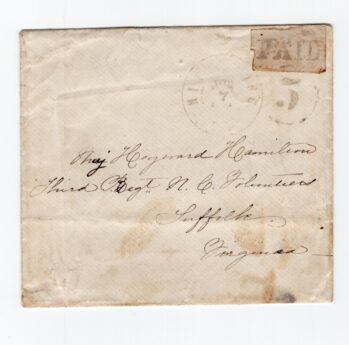 PAID
5
7
Maj Haywood Hamilton
Third Regt. N. C. Volunteers
Suffolk
Virginia